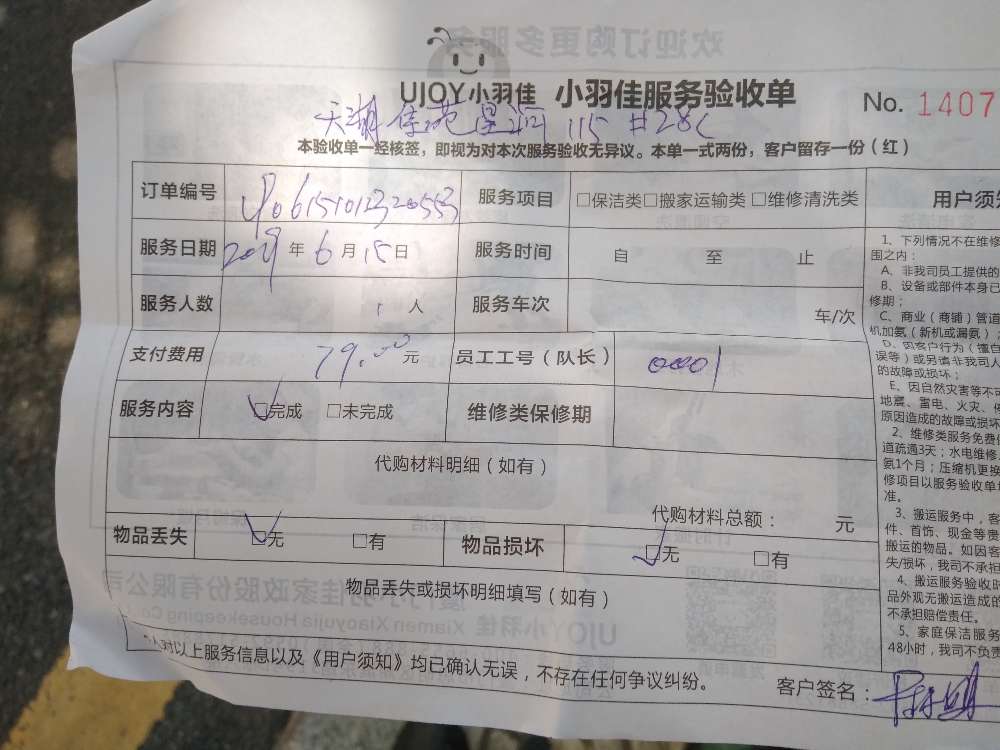 UJOY小羽佳 小羽佳服务验收单 No. 1407
115 #28C
本验收单一经核签，即视为对本次服务验收无异议。本单一式两份，客户留存一份（红）
订单编号 服务项目 □保洁类□搬家运输类□维修清洗类
服务日期 2019 年 6 月 15 日 服务时间 自 至 止
服务人数 人 服务车次 车/次
支付费用 79.00 元 员工工号（队长） 0001
服务内容 □完成 □未完成 维修类保修期
代购材料明细（如有）
代购材料总额： 元
物品丢失 □无 □有 物品损坏 □无 □有
物品丢失或损坏明细填写（如有）
对以上服务信息以及《用户须知》均已确认无误，不存在任何争议纠纷。
客户签名：
用户须
1、下列情况不在维修
围之内：
A、非我司员工提供的
B、设备或部件本身已
修期；
C、商业（商铺）管道
机加氨（新机或漏氨）
D、因客户行为（擅自
误等）或另请非我司人
的故障或损坏；
E、因自然灾害等不可
地震、雷电、火灾、
原因造成的故障或损坏
2、维修类服务免费
道疏通3天；水电维修
氨1个月；压缩机更换
修项目以服务验收单
准。
3、搬运服务中，客
件、首饰、现金等贵
搬运的物品。如因客
失/损坏，我司不承担
4、搬运服务验收时
品外观无搬运造成的
不承担赔偿责任。
5、家庭保洁服务
48小时，我司不负责